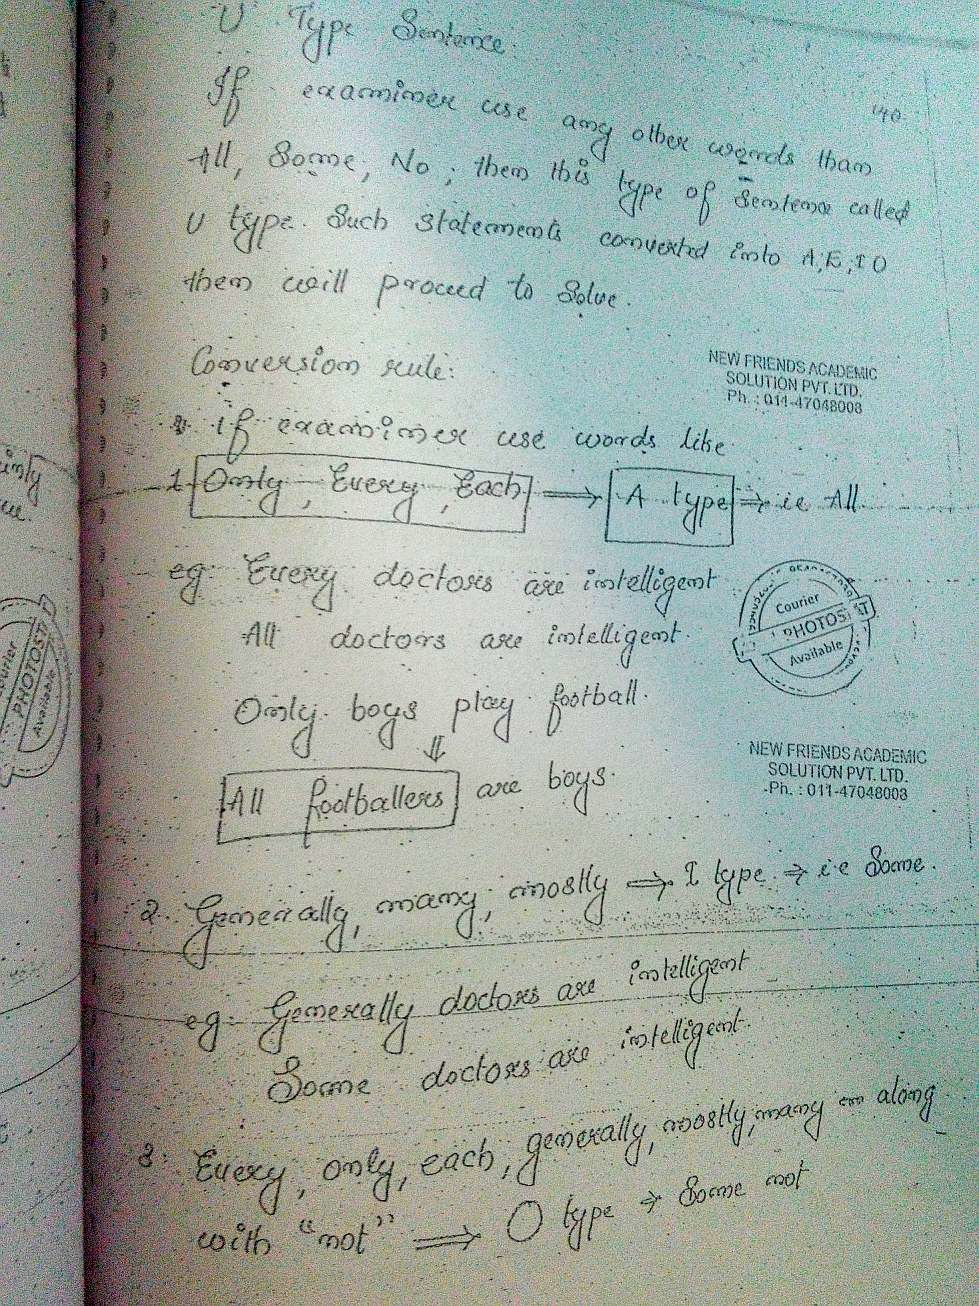 U Type Sentence.
If examiner use any other words than
140
All, Some, No ; then this type of Sentence called
U type. Such statements converted into A,E,I O
then will proceed to solve.
Conversion rule:
NEW FRIENDS ACADEMIC
SOLUTION PVT. LTD.
Ph. : 011-47048008
if examiner use words like
1. Only, Every, Each ⟹ A type ⇒ ie All
eg. Every doctors are intelligent
All doctors are intelligent.
Courier
PHOTOSTAT
Available
Only boys play football.
⇓
All footballers are boys.
NEW FRIENDS ACADEMIC
SOLUTION PVT. LTD.
Ph. : 011-47048008
2. Generally, many, mostly ⟹ I type ⇒ i.e Some.
eg. Generally doctors are intelligent
Some doctors are intelligent.
3. Every, only, each, generally, mostly, many along
with "not" ⟹ O type → Some not
Courier
PHOTOST
Available